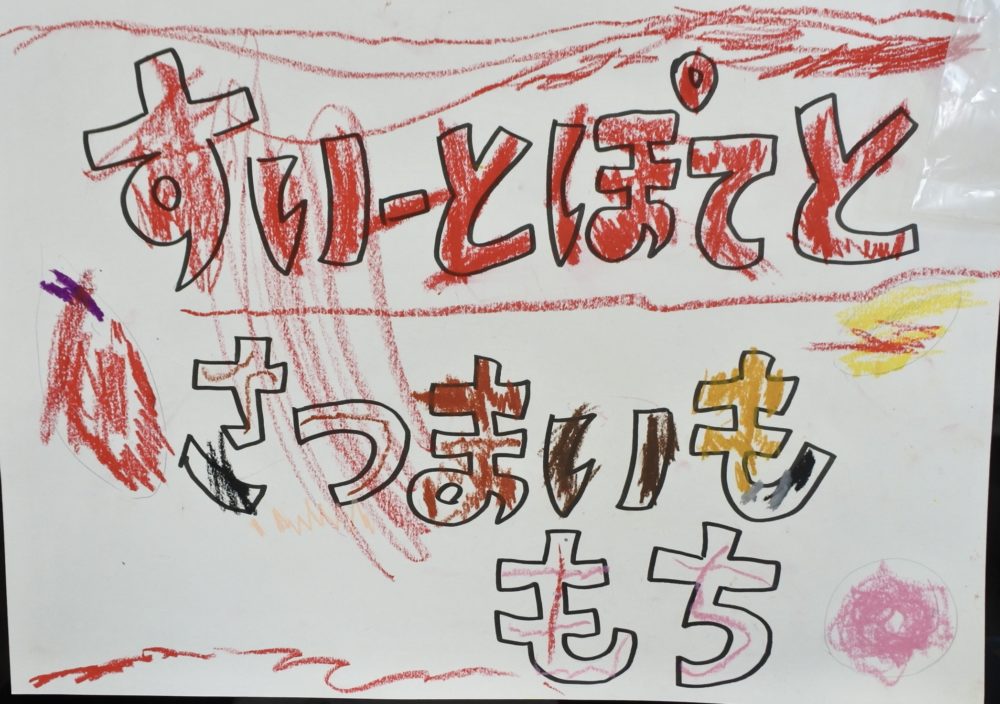 すいーとぽてと
さつまいも
もち